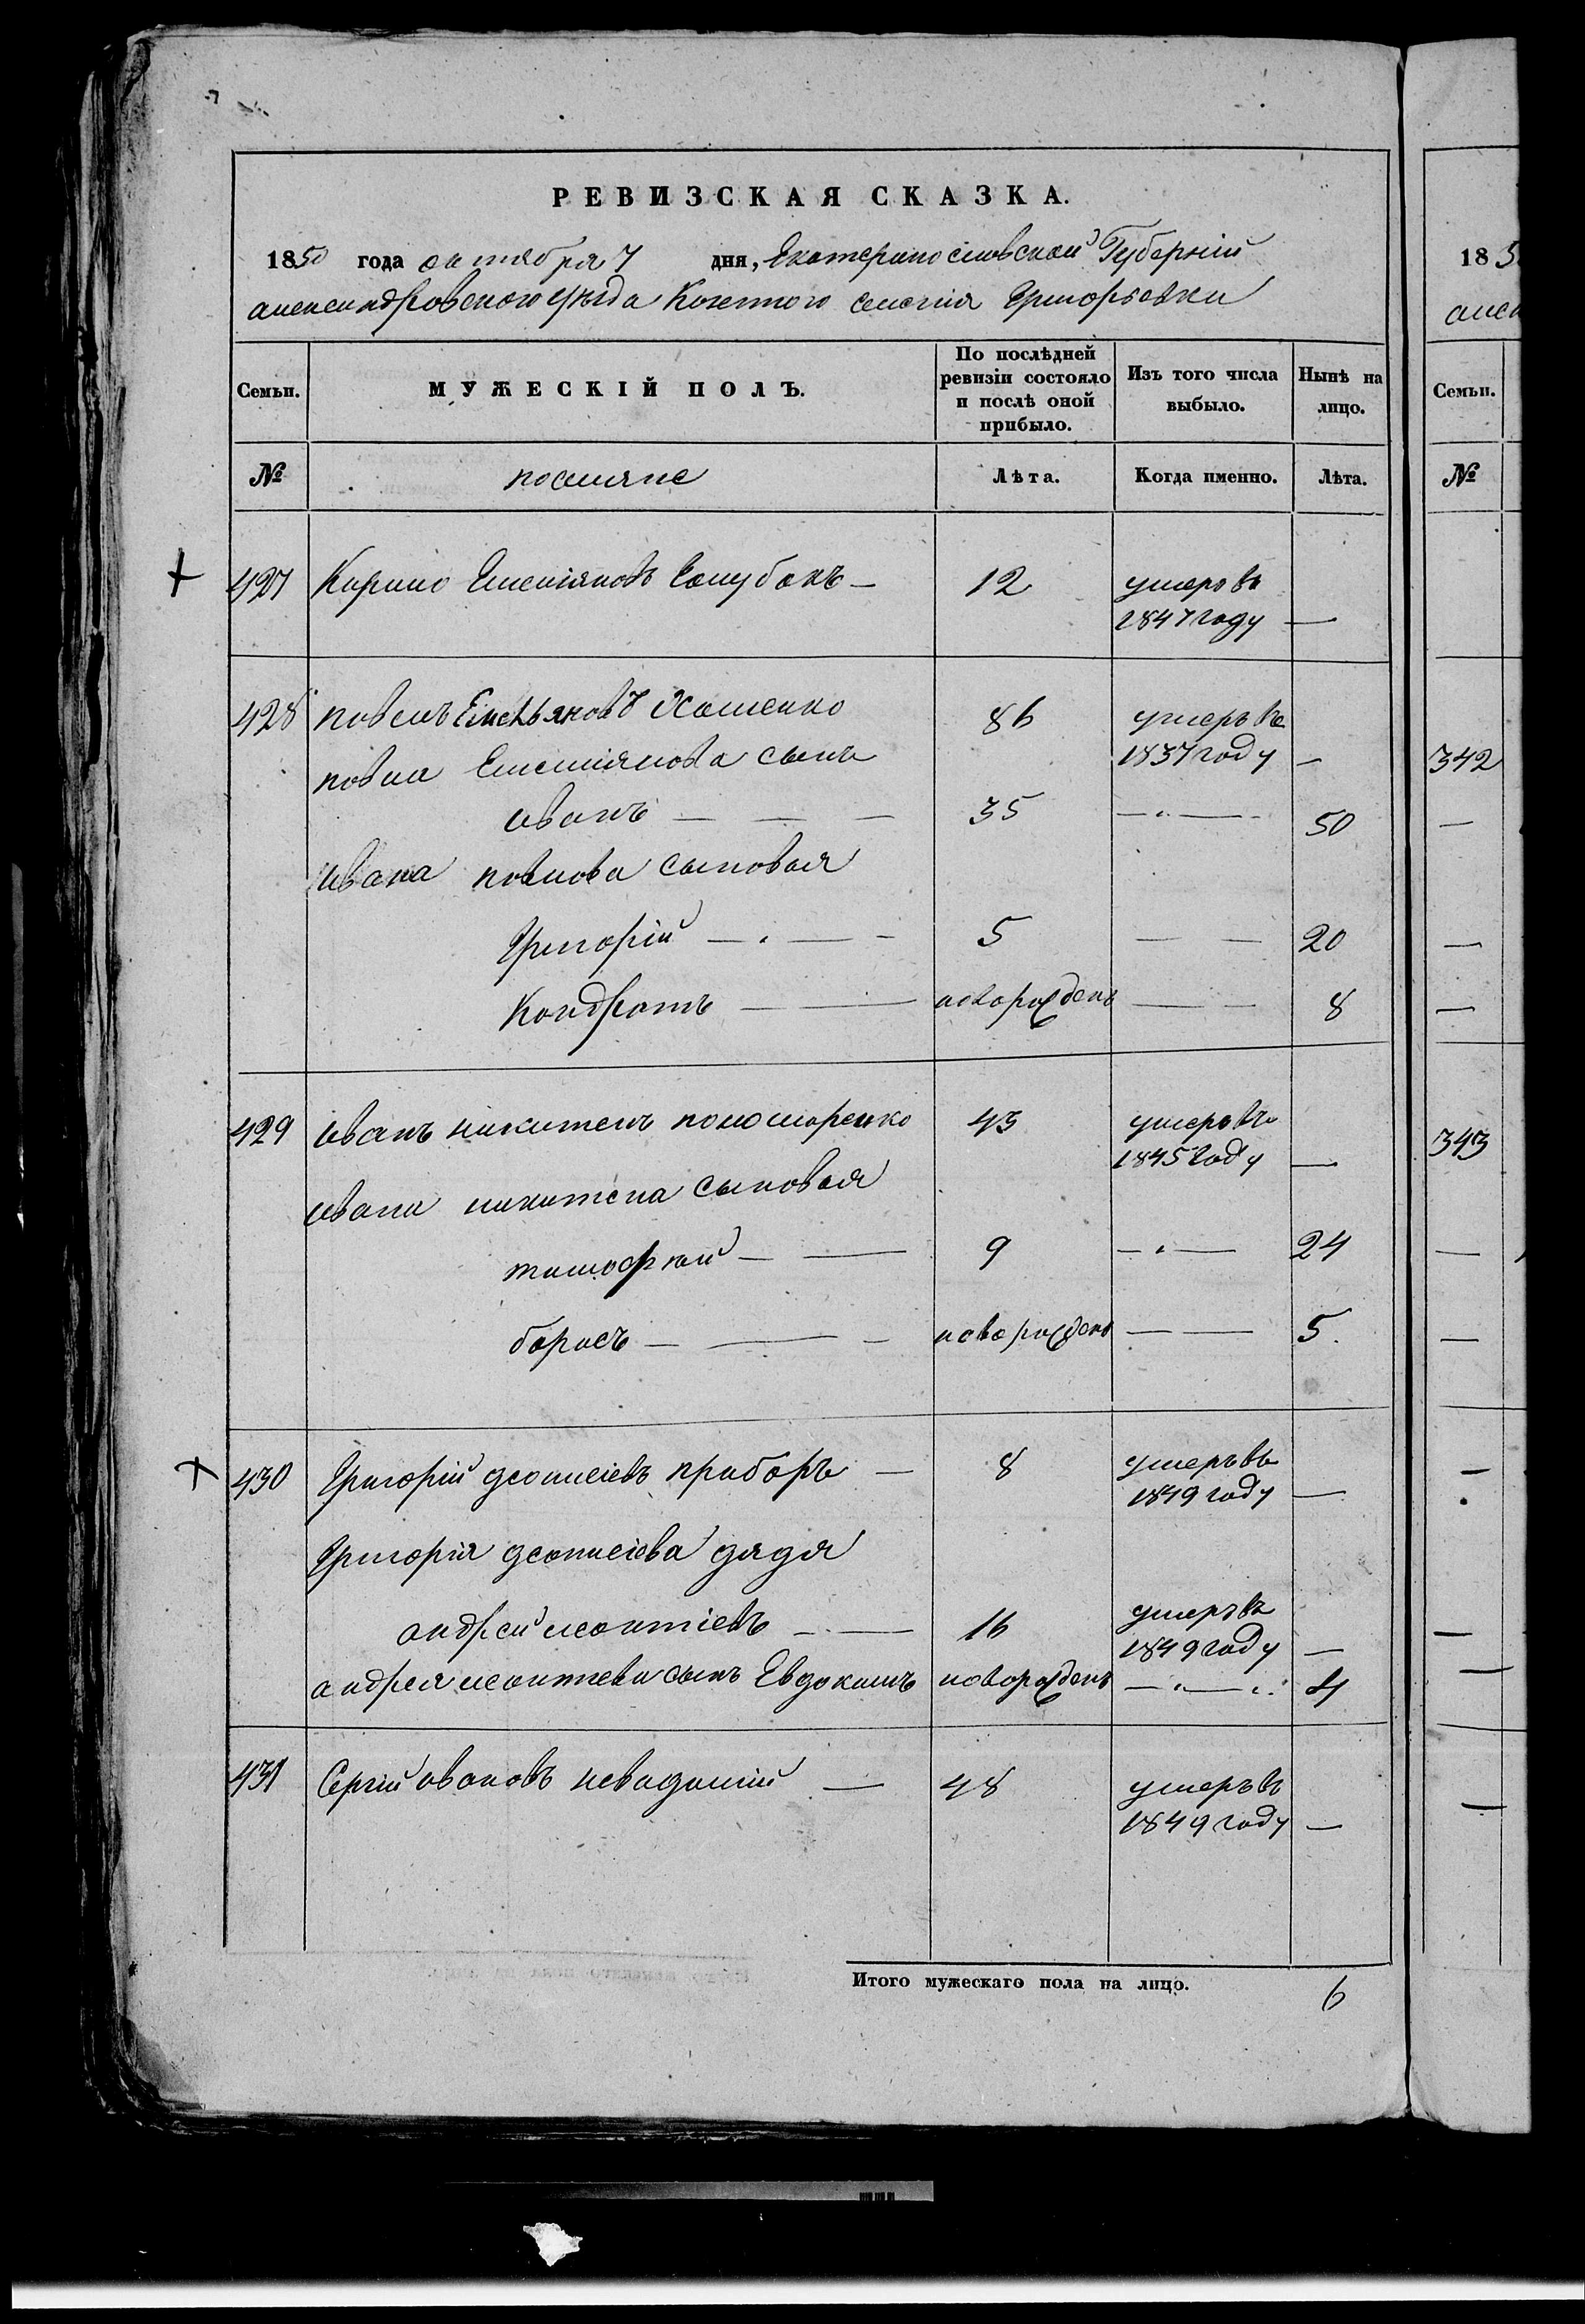 РЕВИЗСКАЯ СКАЗКА.
1850 года октября 7 дня, Екатеринославской Губерній
александровского уѣзда Козенного селенія Григорьевки
Семьи.
МУЖЕСКІЙ ПОЛЪ.
По послѣдней ревизіи состояло и послѣ оной прибыло.
Изъ того числа выбыло.
Нынѣ на лицо.
№
поселяне
Лѣта.
Когда именно.
Лѣта.
427 Карпо Емеліяновъ — 12 умеръ въ
1847 году —
428 павелъ Емельяновъ 86 умеръ въ
1837 году —
павла Емеліянова сынъ
иванъ — — — 35 — — 50
Ивана павлова сыновья
Григорій — — — 5 — — 20
Кондратъ — — новорожденъ — — 8
429 иванъ никитенъ пономаренко 43 умеръ въ
1845 году —
ивана никитена сыновья
тимофей — — 9 — — 24
борисъ — — — новорожденъ — — 5.
430 Григорій деонисіевъ приборъ — 8 умеръ въ
1849 году —
Григорія деонисіева дядя
андрей леонтіевъ — — 16 умеръ въ
1849 году —
андрея леонтіева сынъ Евдокимъ новорожденъ — — 4
431 Сергій ивановъ — 48 умеръ въ
1849 году —
Итого мужескаго пола на лицо. 6
18 5
алек
Семьи.
№
342
343